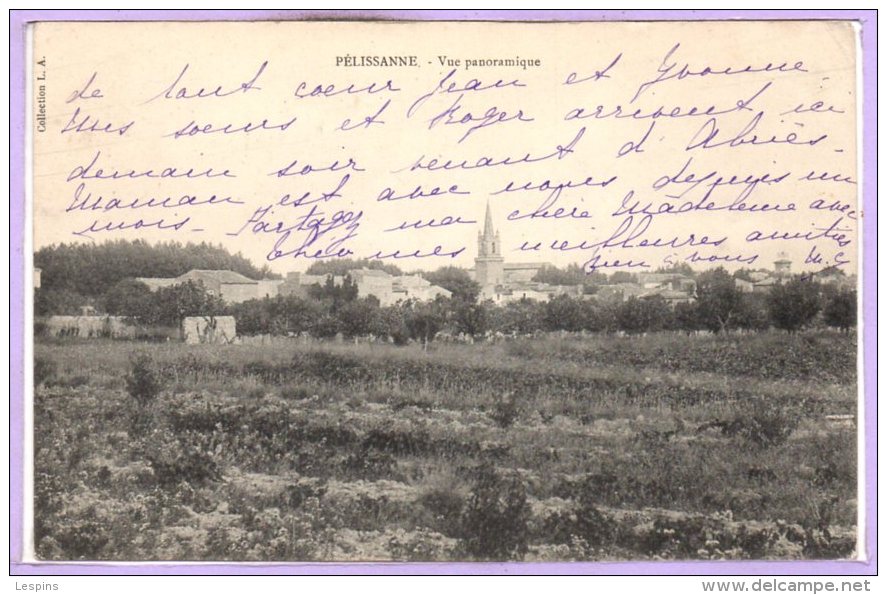 Collection L. A.
PÉLISSANNE. - Vue panoramique
de tout coeur Jean et Yvonne
Mes soeurs et Roger arrivent ici
demain soir venant d'Abriès -
Maman est avec nous depuis un
mois. Partagez ma chère Madeleine avec
mes meilleures amitiés
bien à vous M.C
Lespins
www.delcampe.net